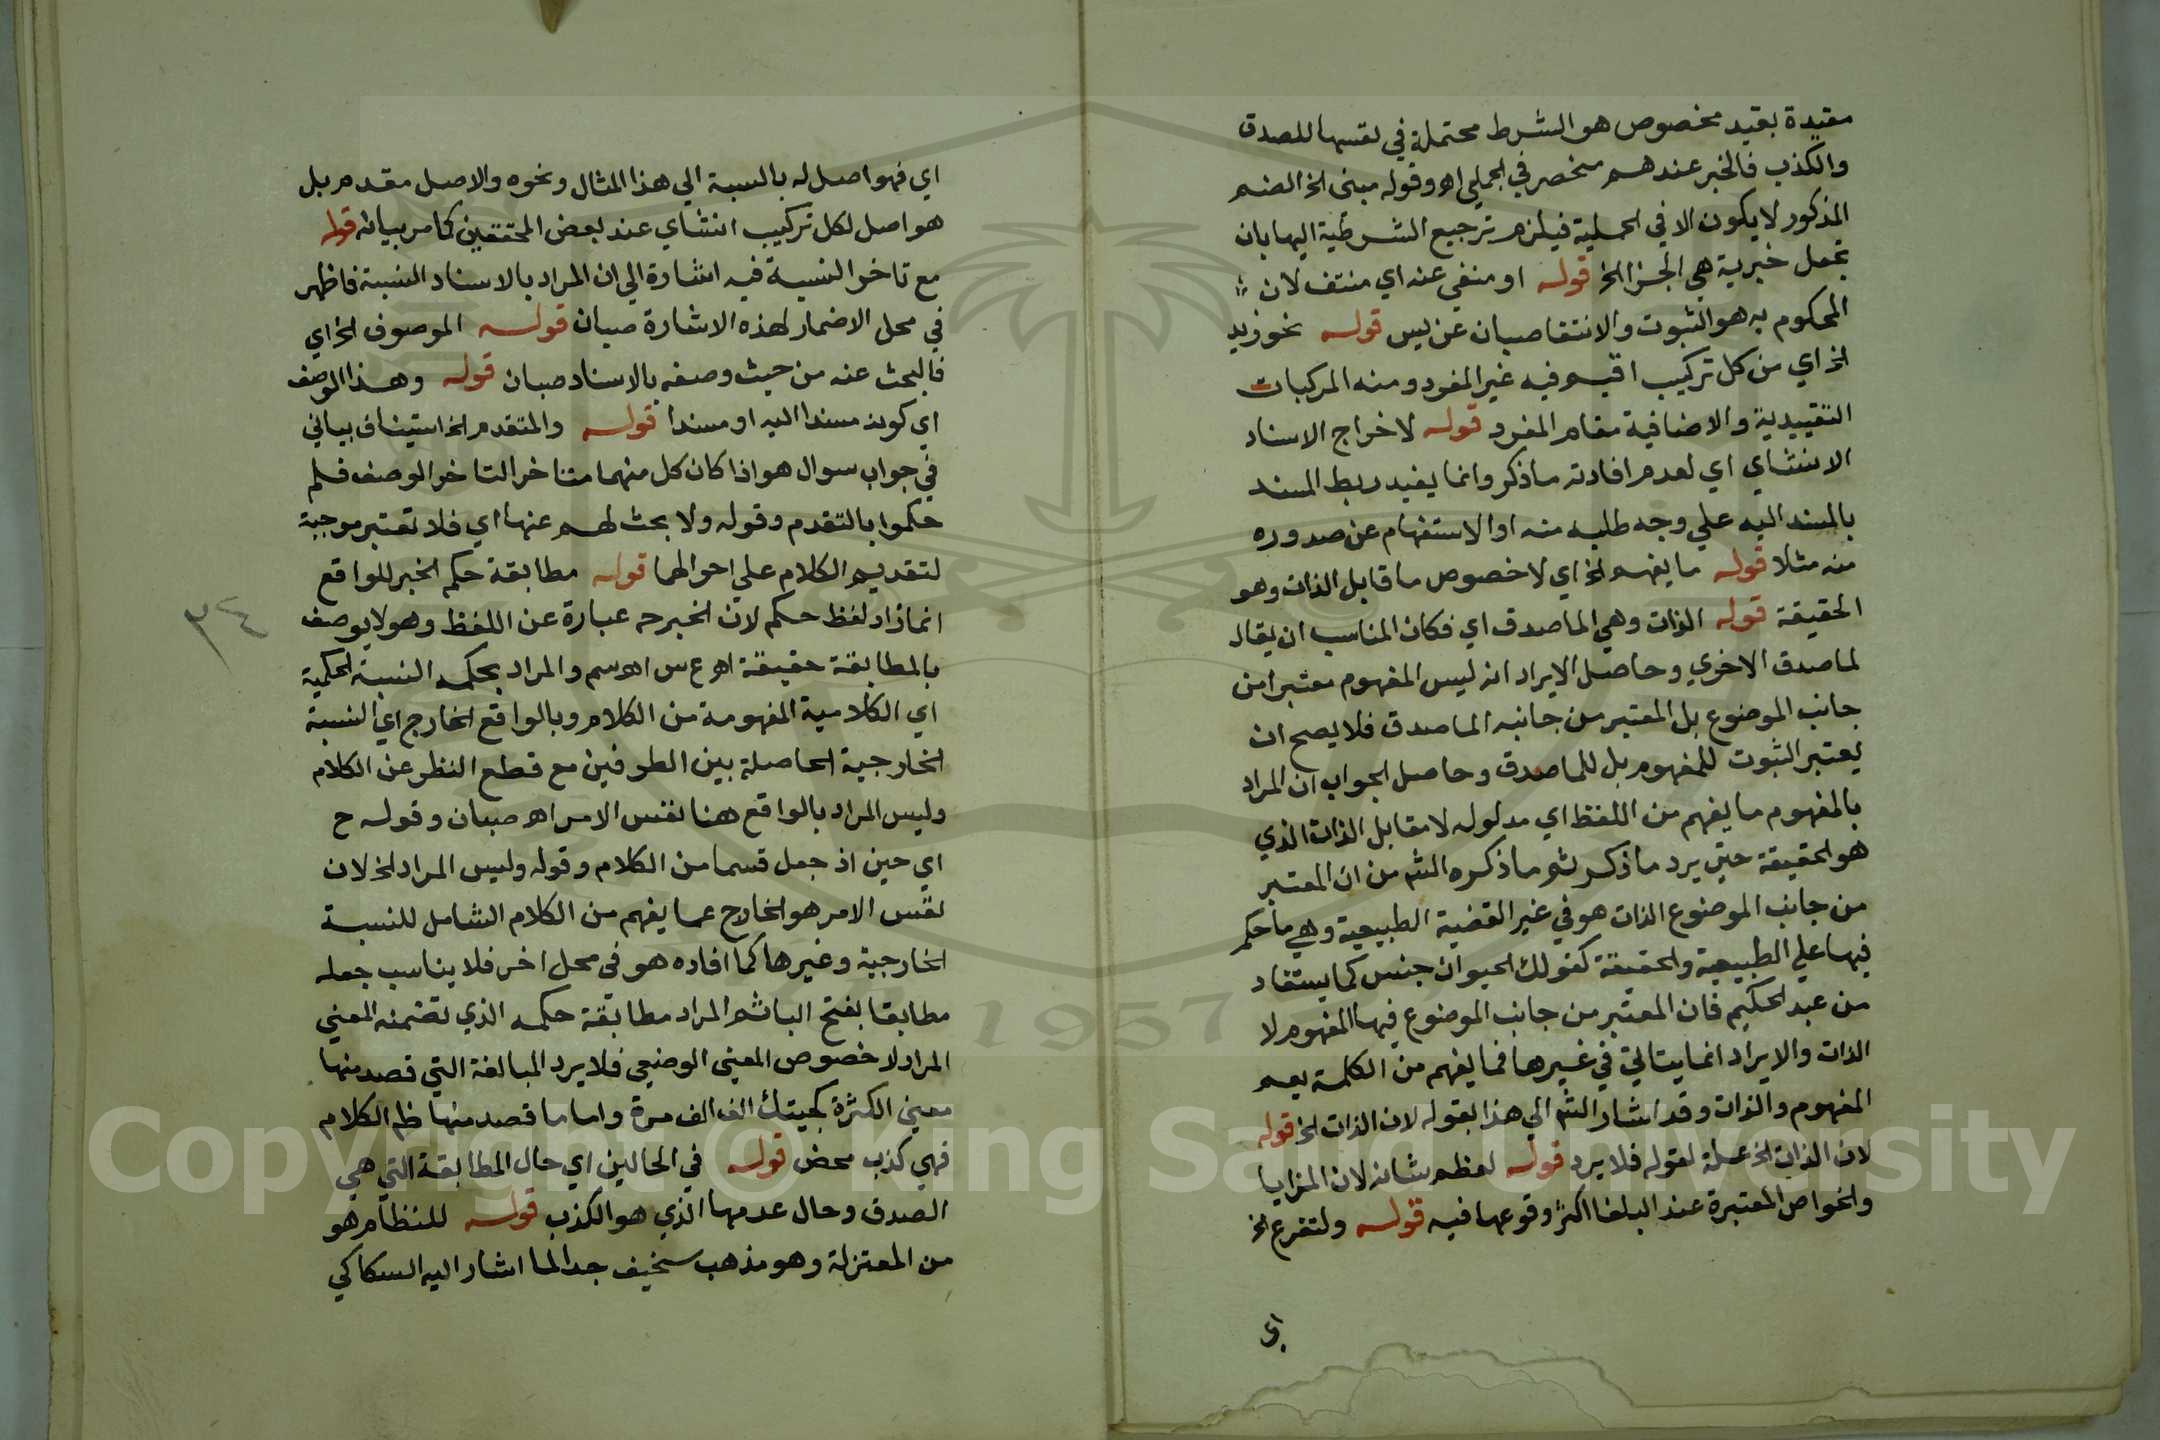 مقيدة بقيد مخصوص هو الشرط محتملة في نفسها للصدق
والكذب فالخبر عندهم منحصر في الحملي اهـ وقوله مبنى الخ الضم
المذكور لا يكون الا في الحملية فيلزم ترجيع الشرطية اليها بان
تجعل خبرية هي الجزا الخ قوله او منفي عنه اي منتف لان
المحكوم به هو الثبوت والانتفا صبان عن يس قوله نحو زيد
الخ اي من كل تركيب اقيم فيه غير المفرد ومنه المركبات
التقييدية والاضافية مقام المفرد قوله لاخراج الاسناد
الانشاي اي لعدم افادته ما ذكر وانما يفيد ربط المسند
بالمسند اليه علي وجه طلبه منه او الاستفهام عن صدوره
منه مثلا قوله ما يفهم الخ اي لا خصوص ما قابل الذات وهو
الحقيقة قوله الذات وهي الماصدق اي فكان المناسب ان يقال
لماصدق الاخري وحاصل الايراد انه ليس المفهوم معتبرا من
جانب الموضوع بل المعتبر من جانبه الماصدق فلا يصح ان
يعتبر الثبوت للمفهوم بل للماصدق وحاصل الجواب ان المراد
بالمفهوم ما يفهم من اللفظ اي مدلوله لا مقابل الذات الذي
هو الحقيقة حتي يرد ما ذكر ثم ما ذكره الشم من ان المعتبر
من جانب الموضوع الذات هو في غير القضية الطبيعية وهي ما حكم
فيها علي الطبيعية والحقيقة كقولك الحيوان جنس كما يستفاد
من عبد الحكيم فان المعتبر من جانب الموضوع فيها المفهوم لا
الذات والايراد انما يتاتي في غيرها فما يفهم من الكلمة يعم
المفهوم والذات وقد اشار الشم الي هذا بقوله لان الذات الخ قوله
لان الذات الخ علة لقوله فلا يرد قوله لعظم شانه لان المزايا
والخواص المعتبرة عند البلغا اكثر وقوعها فيه قوله ولتفرع الخ
اي
اي فهو اصل له بالنسبة الي هذا المثال ونحوه والاصل مقدم بل
هو اصل لكل تركيب انشاي عند بعض المحققين كما مر بيانه قوله
مع تاخر النسبة فيه اشارة الي ان المراد بالاسناد النسبة فاظهر
في محل الاضمار لهذه الاشارة صبان قوله الموصوف الخ اي
فالبحث عنه من حيث وصفه بالاسناد صبان قوله وهذا الوصف
اي كونه مسندا اليه او مسندا قوله والمتقدم الخ استيناف بياني
في جواب سوال هو اذا كان كل منهما متاخر التاخر الوصف فلم
حكموا بالتقدم وقوله ولا بحث لهم عنها اي فلا تعتبر موجبة
لتقديم الكلام علي احوالها قوله مطابقة حكم الخبر للواقع
انما زاد لفظ حكم لان الخبر ح عبارة عن اللفظ وهو لا يوصف
بالمطابقة حقيقة اهـ ع س اهـ سم والمراد بحكمه النسبة الحكمية
اي الكلامية المفهومة من الكلام وبالواقع الخارج اي النسبة
الخارجية الحاصلة بين الطرفين مع قطع النظر عن الكلام
وليس المراد بالواقع هنا نفس الامر اهـ صبان وقوله ح
اي حين اذ جعل قسما من الكلام وقوله وليس المراد الخ لان
نفس الامر هو الخارج عما يفهم من الكلام الشامل للنسبة
الخارجية وغيرها كما افاده هو في محل اخر فلا يناسب جعله
مطابقا بفتح البا ثم المراد مطابقة حكمه الذي تضمنه المعني
المراد لا خصوص المعني الوضعي فلا يرد المبالغة التي قصد منها
معني الكثرة كجيتك الف الف مرة واما ما قصد منها ظم الكلام
فهي كذب محض قوله في الحالين اي حال المطابقة التي هي
الصدق وحال عدمها الذي هو الكذب قوله للنظام هو
من المعتزلة وهو مذهب سخيف جدا لما اشار اليه السكاكي
٣٤
1957
Copyright © King Saud University